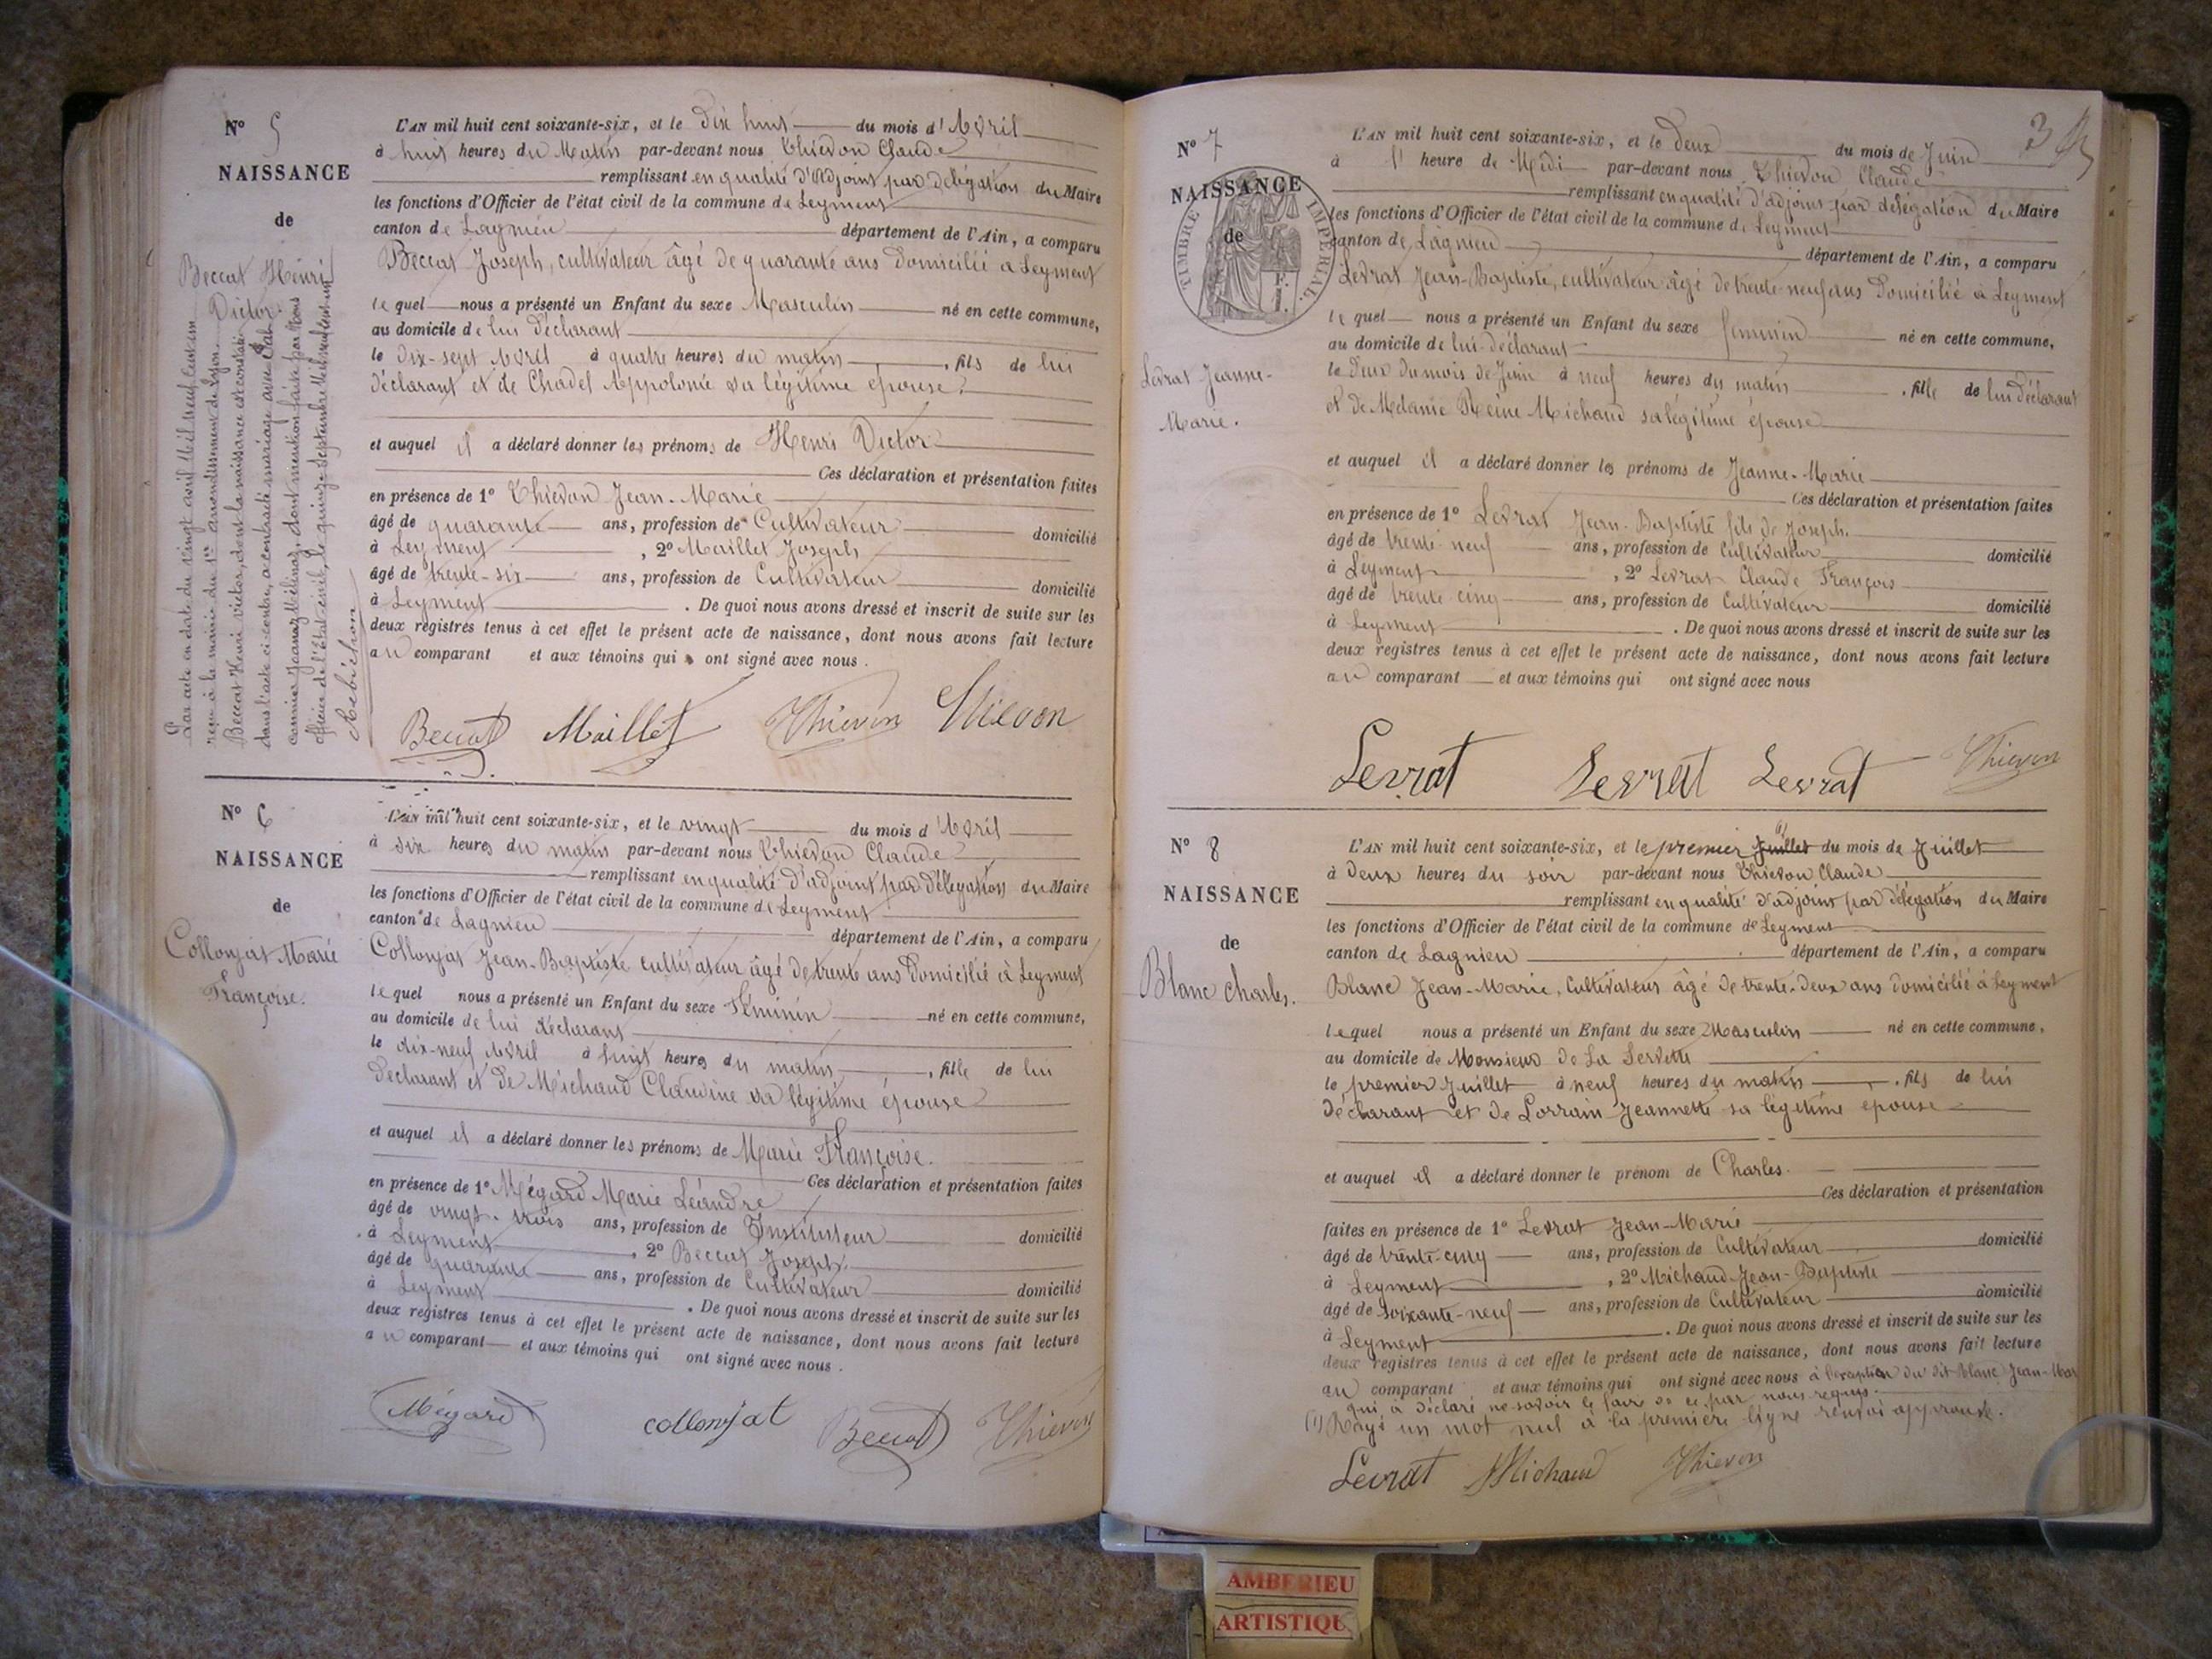 N° 5
NAISSANCE
de
Beccat Henri
Victor.
Par acte en date du vingt avril Mil neuf cent un
reçu à la mairie du 1er arrondissement de Lyon.
Beccat Henri victor, dont la naissance est constatée
dans l'acte ci-contre, a contracté mariage avec
officier de l'Etat-civil, le quinze Septembre Mil neuf cent un
L'AN mil huit cent soixante-six, et le Dix huit du mois d'Avril
à huit heures du Matin par-devant nous Thievon Claude
remplissant en qualité d'Adjoint par délégation du Maire
les fonctions d'Officier de l'état civil de la commune de Leyment
canton de Lagnieu département de l'Ain, a comparu
Beccat Joseph, cultivateur âgé de quarante ans Domicilié à Leyment
lequel nous a présenté un Enfant du sexe Masculin né en cette commune,
au domicile de lui Déclarant
le Dix-sept Avril à quatre heures du matin, fils de lui
Déclarant et de Chadel Appolonie sa légitime épouse.
et auquel il a déclaré donner les prénoms de Henri Victor
Ces déclaration et présentation faites
en présence de 1° Thievon Jean-Marie
âgé de quarante ans, profession de Cultivateur domicilié
à Leyment, 2° Maillet Joseph
âgé de trente-six ans, profession de Cultivateur domicilié
à Leyment. De quoi nous avons dressé et inscrit de suite sur les
deux registres tenus à cet effet le présent acte de naissance, dont nous avons fait lecture
au comparant et aux témoins qui ont signé avec nous.
Beccat Maillet Thievon Thievon
N° 6
NAISSANCE
de
Collonjat Marie
Françoise.
L'AN mil huit cent soixante-six, et le vingt du mois d'Avril
à six heures du matin par-devant nous Thievon Claude
remplissant en qualité d'adjoint par délégation du Maire
les fonctions d'Officier de l'état civil de la commune de Leyment
canton de Lagnieu département de l'Ain, a comparu
Collonjat Jean-Baptiste cultivateur âgé de trente ans Domicilié à Leyment
lequel nous a présenté un Enfant du sexe Féminin né en cette commune,
au domicile de lui déclarant
le dix-neuf Avril à huit heures du matin, fille de lui
Déclarant et de Michaud Claudine sa légitime épouse
et auquel il a déclaré donner les prénoms de Marie Françoise.
Ces déclaration et présentation faites
en présence de 1° Mégard Marie Léandre
âgé de vingt-trois ans, profession de Instituteur domicilié
à Leyment, 2° Beccat Joseph.
âgé de quarante ans, profession de Cultivateur domicilié
à Leyment. De quoi nous avons dressé et inscrit de suite sur les
deux registres tenus à cet effet le présent acte de naissance, dont nous avons fait lecture
au comparant et aux témoins qui ont signé avec nous.
Mégard collonjat Beccat Thievon
3
N° 7
NAISSANCE
de
TIMBRE IMPÉRIAL.
Levrat Jeanne-
Marie.
L'AN mil huit cent soixante-six, et le Deux du mois de Juin
à l' heure de Midi par-devant nous Thievon Claude
remplissant en qualité d'adjoint par délégation du Maire
les fonctions d'Officier de l'état civil de la commune de Leyment
canton de Lagnieu département de l'Ain, a comparu
Levrat Jean-Baptiste, cultivateur âgé de trente-neuf ans Domicilié à Leyment
lequel nous a présenté un Enfant du sexe féminin né en cette commune,
au domicile de lui déclarant
le Deux du mois de Juin à neuf heures du matin, fille de lui déclarant
et de Mélanie Reine Michaud sa légitime épouse
et auquel il a déclaré donner les prénoms de Jeanne-Marie
Ces déclaration et présentation faites
en présence de 1° Levrat Jean-Baptiste fils de Joseph.
âgé de trente-neuf ans, profession de Cultivateur domicilié
à Leyment, 2° Levrat Claude François
âgé de trente-cinq ans, profession de Cultivateur domicilié
à Leyment. De quoi nous avons dressé et inscrit de suite sur les
deux registres tenus à cet effet le présent acte de naissance, dont nous avons fait lecture
au comparant et aux témoins qui ont signé avec nous
Levrat Levrat Levrat Thievon
N° 8
NAISSANCE
de
Blanc Charles.
L'AN mil huit cent soixante-six, et le premier Juillet (1) du mois de Juillet
à Deux heures du soir par-devant nous Thievon Claude
remplissant en qualité d'adjoint par délégation du Maire
les fonctions d'Officier de l'état civil de la commune de Leyment
canton de Lagnieu département de l'Ain, a comparu
Blanc Jean-Marie, Cultivateur âgé de trente-deux ans domicilié à Leyment
lequel nous a présenté un Enfant du sexe Masculin né en cette commune,
au domicile de Monsieur de La Servette
le premier Juillet à neuf heures du matin, fils de lui
Déclarant et de Lorrain Jeannette sa légitime épouse
et auquel il a déclaré donner le prénom de Charles.
Ces déclaration et présentation
faites en présence de 1° Levrat Jean-Marie
âgé de trente-cinq ans, profession de Cultivateur domicilié
à Leyment, 2° Michaud Jean-Baptiste
âgé de soixante-neuf ans, profession de Cultivateur domicilié
à Leyment. De quoi nous avons dressé et inscrit de suite sur les
deux registres tenus à cet effet le présent acte de naissance, dont nous avons fait lecture
au comparant et aux témoins qui ont signé avec nous à l'exception du dit Blanc Jean-Mar
qui a déclaré ne savoir le faire de ce par nous requis.
(1) Rayé un mot nul à la première ligne renvoi approuvé.
Levrat Michaud Thievon
AMBERIEU
ARTISTIQU